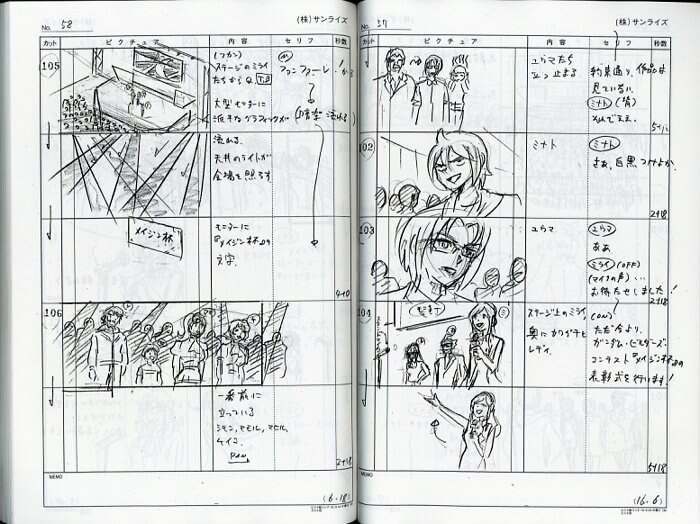 No. 58
(株)サンライズ
カット
ピクチュア
内容
セリフ
秒数
105
(フカン)
ステージのミライ
たちからQ T.B
大型モニターに
派手なグラフィックが
流れる。
天井のライトが
会場を照らす。
ファンファーレ
(音楽 流れる)
メイジン杯
モニターに
『メイジン杯』の
文字。
4+0
106
一番前に
立っている
シモン, マモル, マヒル,
ケイコ.
PAN
2+18
MEMO
(6.18)
No. 57
(株)サンライズ
カット
ピクチュア
内容
セリフ
秒数
ユウマたち
立ち止まる
約束通り、作品は
見ていない
ミナト (笑)
5+12
102
ミナト
ミナト
さぁ、白黒つけよか。
2+18
103
ユウマ
ユウマ
ああ
ミライ (OFF)
(マイクの声)…
お待たせしました!
2+18
104
ステージ上のミライ
奥にカワグチと
レディ。
(ON)
ただ今より、
ガンダム・ビルダーズ
コンテスト『メイジン杯』の
表彰式を行います!
5+18
MEMO
(16.6)